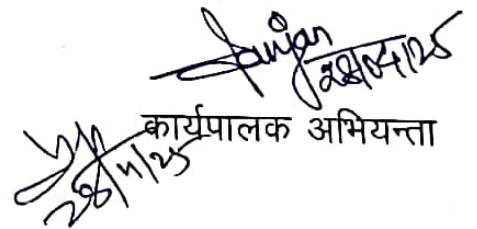 28/04/25
कार्यपालक अभियन्ता
28/4/25